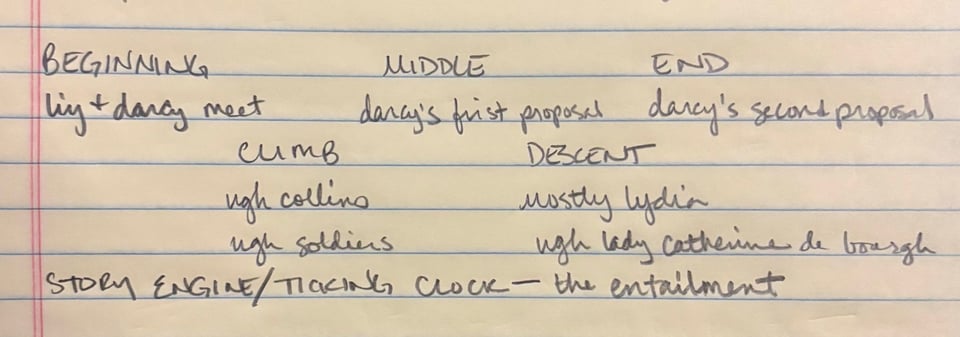 BEGINNING MIDDLE END
liz + darcy meet darcy's first proposal darcy's second proposal
CLIMB DESCENT
ugh collins mostly lydia
ugh soldiers ugh lady catherine de bourgh
STORY ENGINE/TICKING CLOCK — the entailment